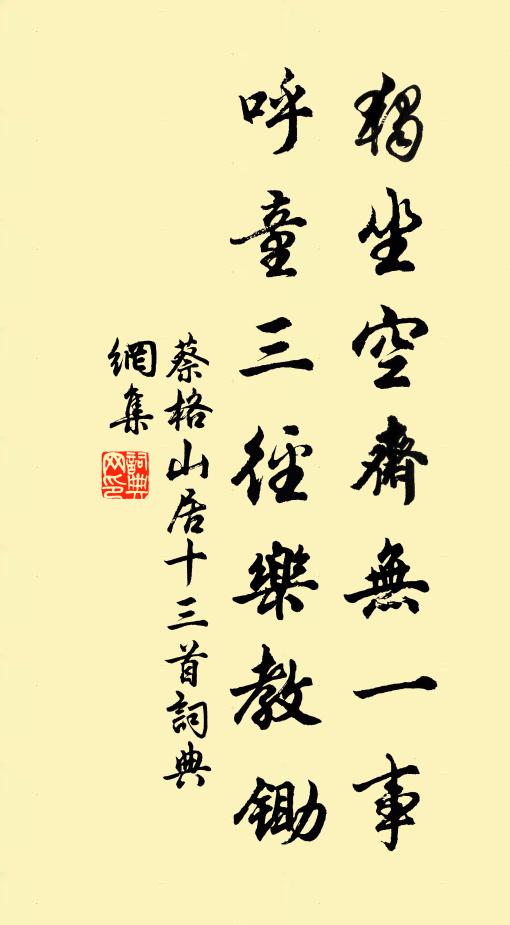 獨坐空齋無一事
呼童三徑樂教鋤
蔡格山居十三首詞典
網集
詞典网印